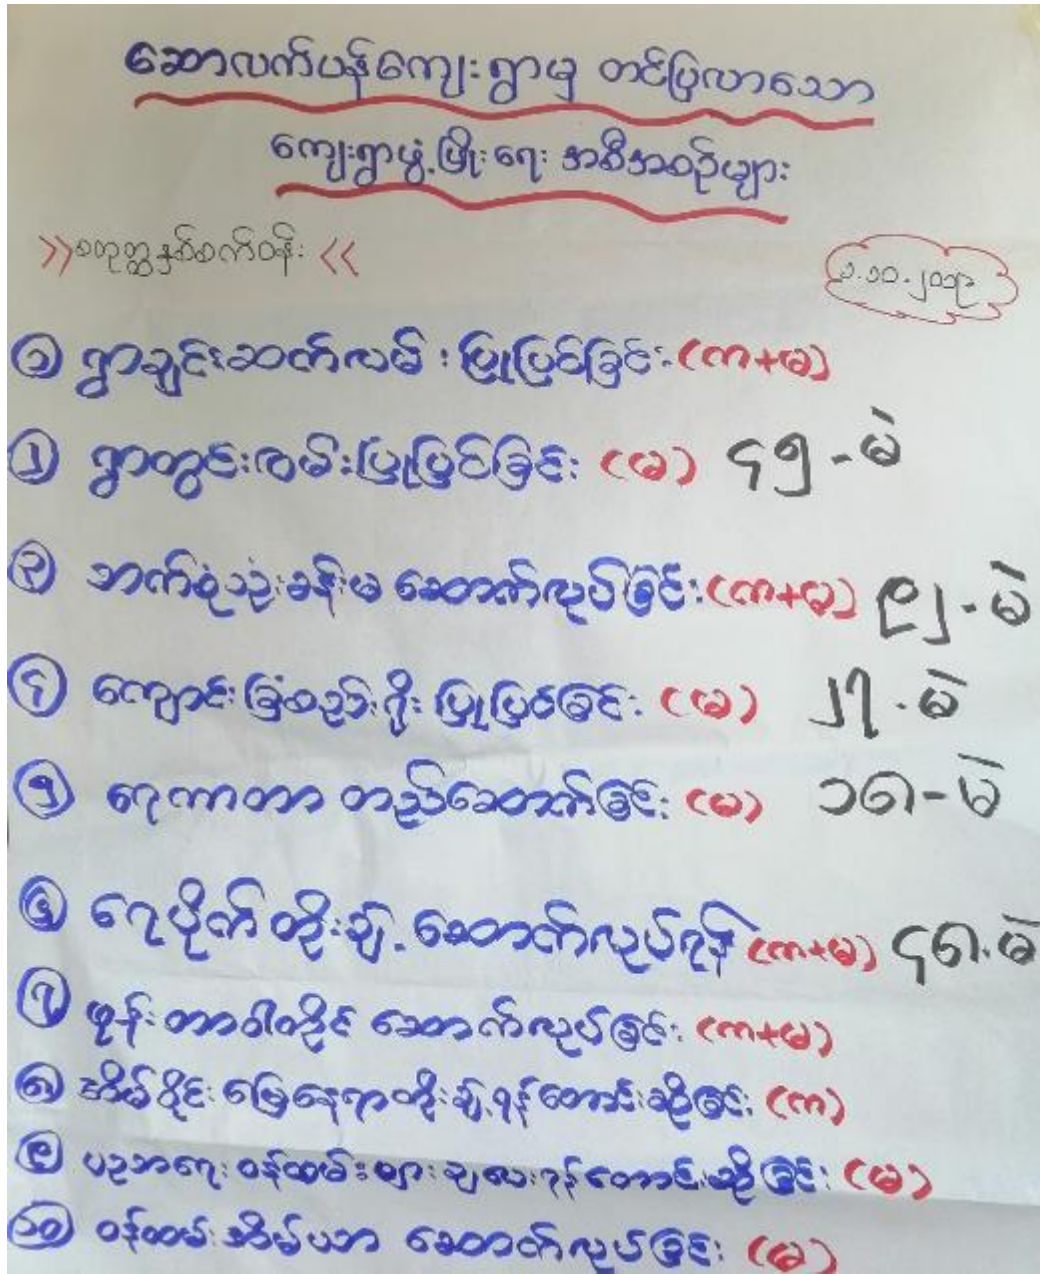 ဆောလက်ပန်ကျေးရွာမှ တင်ပြလာသော
ကျေးရွာဖွံ့ဖြိုးရေး အစီအစဉ်များ
>>စတုတ္ထနှစ်စက်ဝန်း<<
၁.၁၀.၂၀၁၉
၁ ရွာချင်းဆက်လမ်း ပြုပြင်ခြင်း (ကာ+မ)
၂ ရွာတွင်းလမ်းပြုပြင်ခြင်း (မ) ၄၅-မဲ
၃ ဘက်စုံသုံးခန်းမ ဆောက်လုပ်ခြင်း (ကာ+မ) ၉၂-မဲ
၄ ကျောင်းခြံစည်းရိုး ပြုပြင်ခြင်း (မ) ၂၇-မဲ
၅ ရေကာတာ တည်ဆောက်ခြင်း (မ) ၁၈-မဲ
၆ ရေပိုက်တိုးချဲ့ ဆောက်လုပ်ရန် (ကာ+မ) ၄၈-မဲ
၇ ဖုန်းတာဝါတိုင် ဆောက်လုပ်ခြင်း (ကာ+မ)
၈ အိမ်ဝိုင်းမြေနေရာတိုးချဲ့ရန်တောင်းဆိုခြင်း (ကာ)
၉ ပညာရေးဝန်ထမ်းများချပေးရန်တောင်းဆိုခြင်း (မ)
၁၀ ဝန်ထမ်းအိမ်ယာ ဆောက်လုပ်ခြင်း (မ)